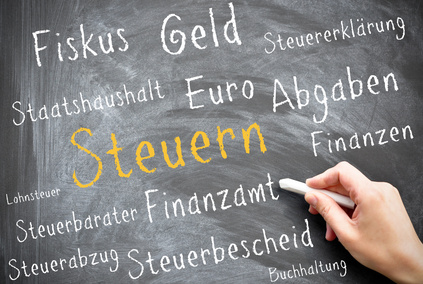 Fiskus Geld Steuererklärung
Staatshaushalt Euro Abgaben
Steuern Finanzen
Lohnsteuer
Steuerbarater Finanzamt
Steuerabzug Steuerbescheid
Buchhaltung